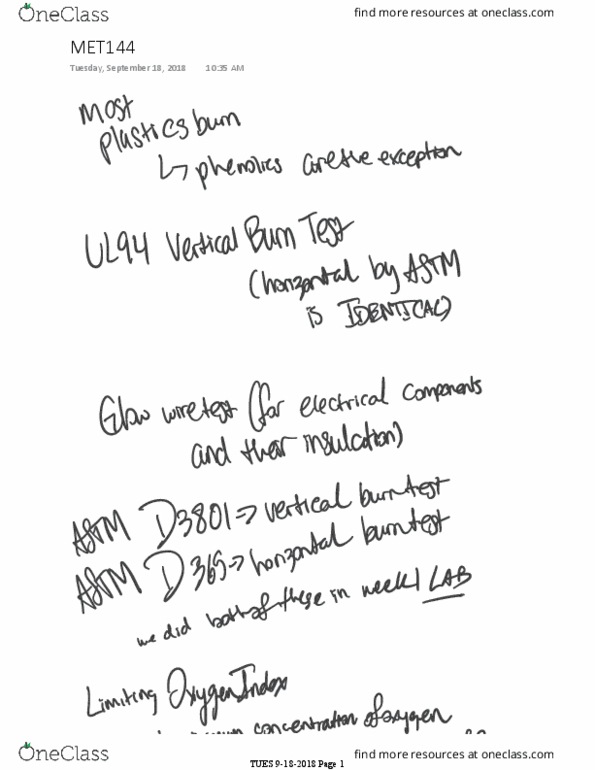 OneClass
find more resources at oneclass.com
MET144
Tuesday, September 18, 2018 10:35 AM
Most
plastics burn
↳ phenolics are the exception
UL94 Vertical Burn Test
(horizontal by ASTM
is IDENTICAL)
Glow wire test (for electrical components
and their insulation)
ASTM D3801 => vertical burn test
ASTM D365 => horizontal burn test
we did both of these in week 1 LAB
Limiting Oxygen Index
concentration of oxygen
OneClass
find more resources at oneclass.com
TUES 9-18-2018 Page 1